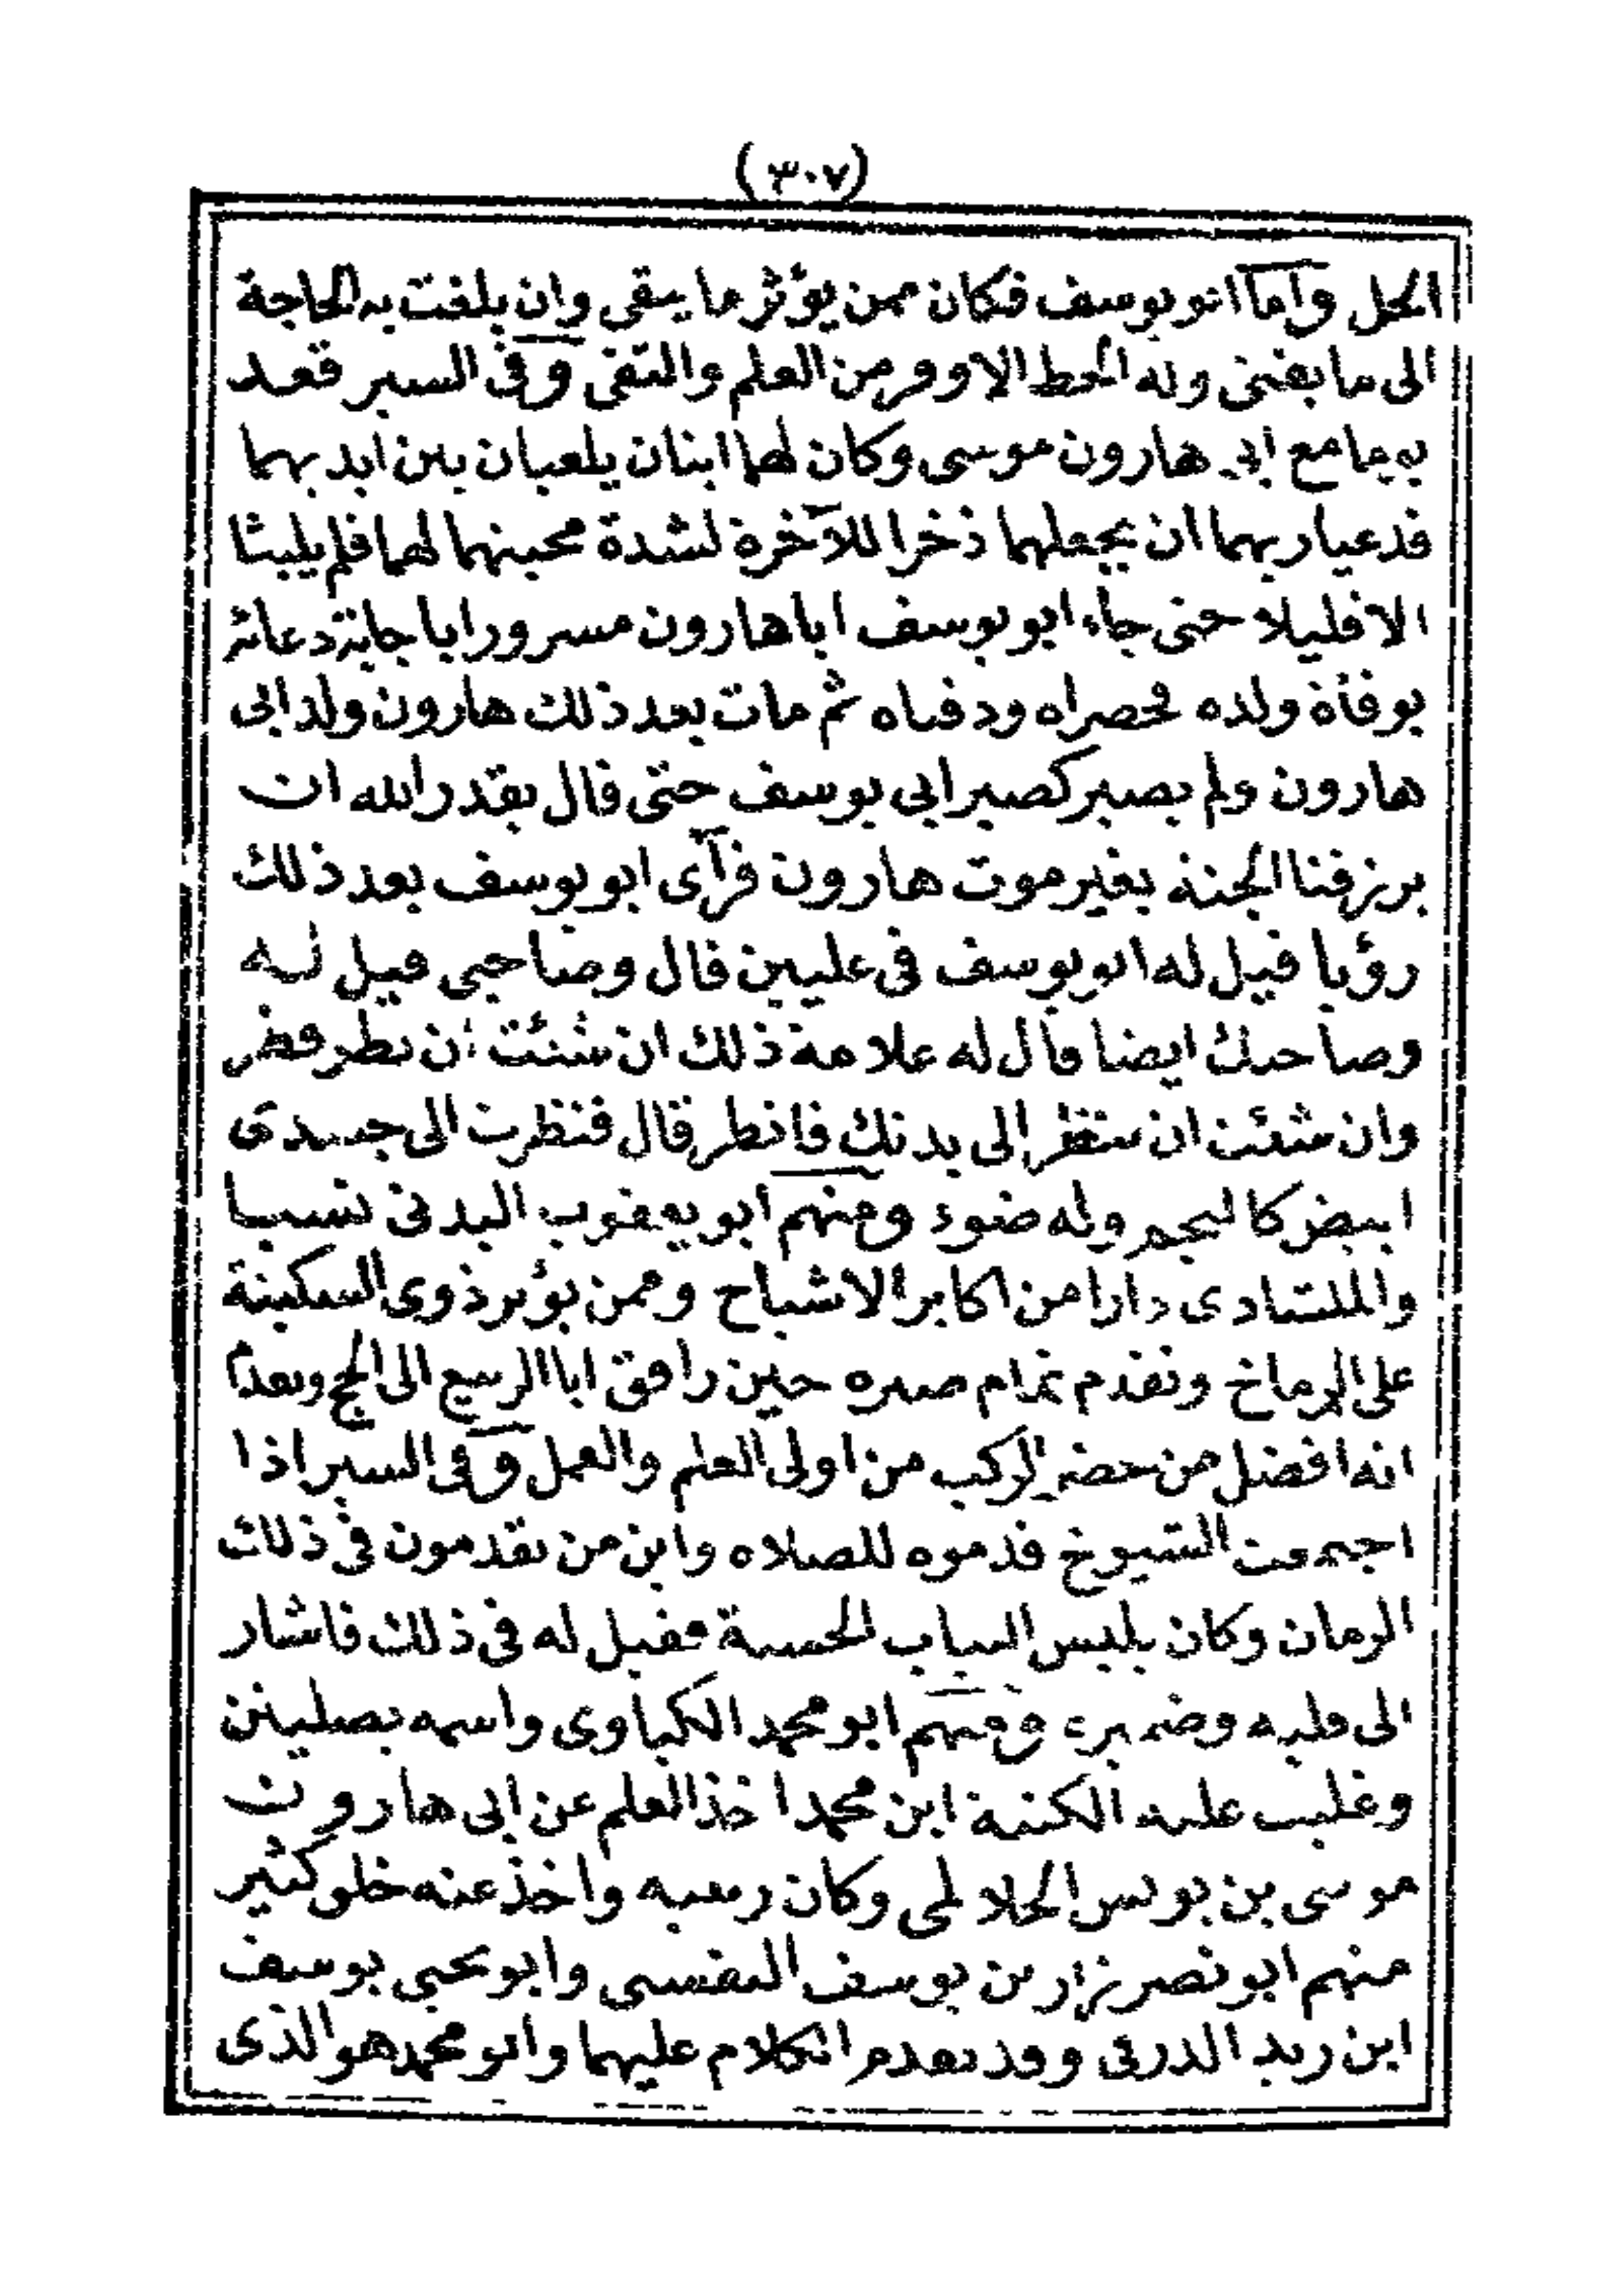 (٣٠٧)
الحل واما ابو يوسف فكان ممن يؤثر ما يبقى وان بلغت به الحاجة
الى ما يفنى وله الحظ الاوفر من العلم والتقى وفى السير قعد
يوما مع ابى هارون موسى وكان لهما ابنان يلعبان بين ايديهما
فدعيا ربهما ان يجعلهما ذخرا للآخرة لشدة محبتهما لهما فلم يلبثا
الا قليلا حتى جاء ابو يوسف ابا هارون مسرورا باجابة دعائه
بوفاة ولده فحضراه ودفناه ثم مات بعد ذلك هارون ولد ابى
هارون ولم يصبر كصبر ابى يوسف حتى قال بقدر الله ان
يرزقنا الجنة بغير موت هارون فرآى ابو يوسف بعد ذلك
رؤيا قيل له ابو يوسف فى عليين قال وصاحبى قيل له
وصاحبك ايضا قال له علامة ذلك ان شئت ان تطر فطر
وان شئت ان تنظر الى بدنك فانظر قال فنظرت الى جسدى
ابيض كالنجم وله ضوء ومنهم ابو يعقوب البدنى نسبا
والملتشادى دارا من اكابر الاشياخ وممن يؤثر ذوى السكينة
على الرماخ وتقدم تمام صبره حين رافق ابا الربيع الى الحج وتعدم
انه افضل من حضر الركب من اولى العلم والعمل وفى السير اذا
اجتمعت الشيوخ قدموه للصلاه واين من يتقدمون فى ذلك
الزمان وكان يلبس الثياب الخسسة فقيل له فى ذلك فاشار
الى قلبه وضميره ومنهم ابو محمد الكباوى واسمه يصليتن
وغلبت عليه الكنية ابن محمد اخذ العلم عن ابى هارون
موسى بن يونس الجلالمى وكان ربيبه واخذ عنه خلق كثير
منهم ابو نصر زار بن يوسف النفسى وابو يحيى يوسف
ابن زيد الدرفى وقد تقدم الكلام عليهما وابو محمد هو الذى